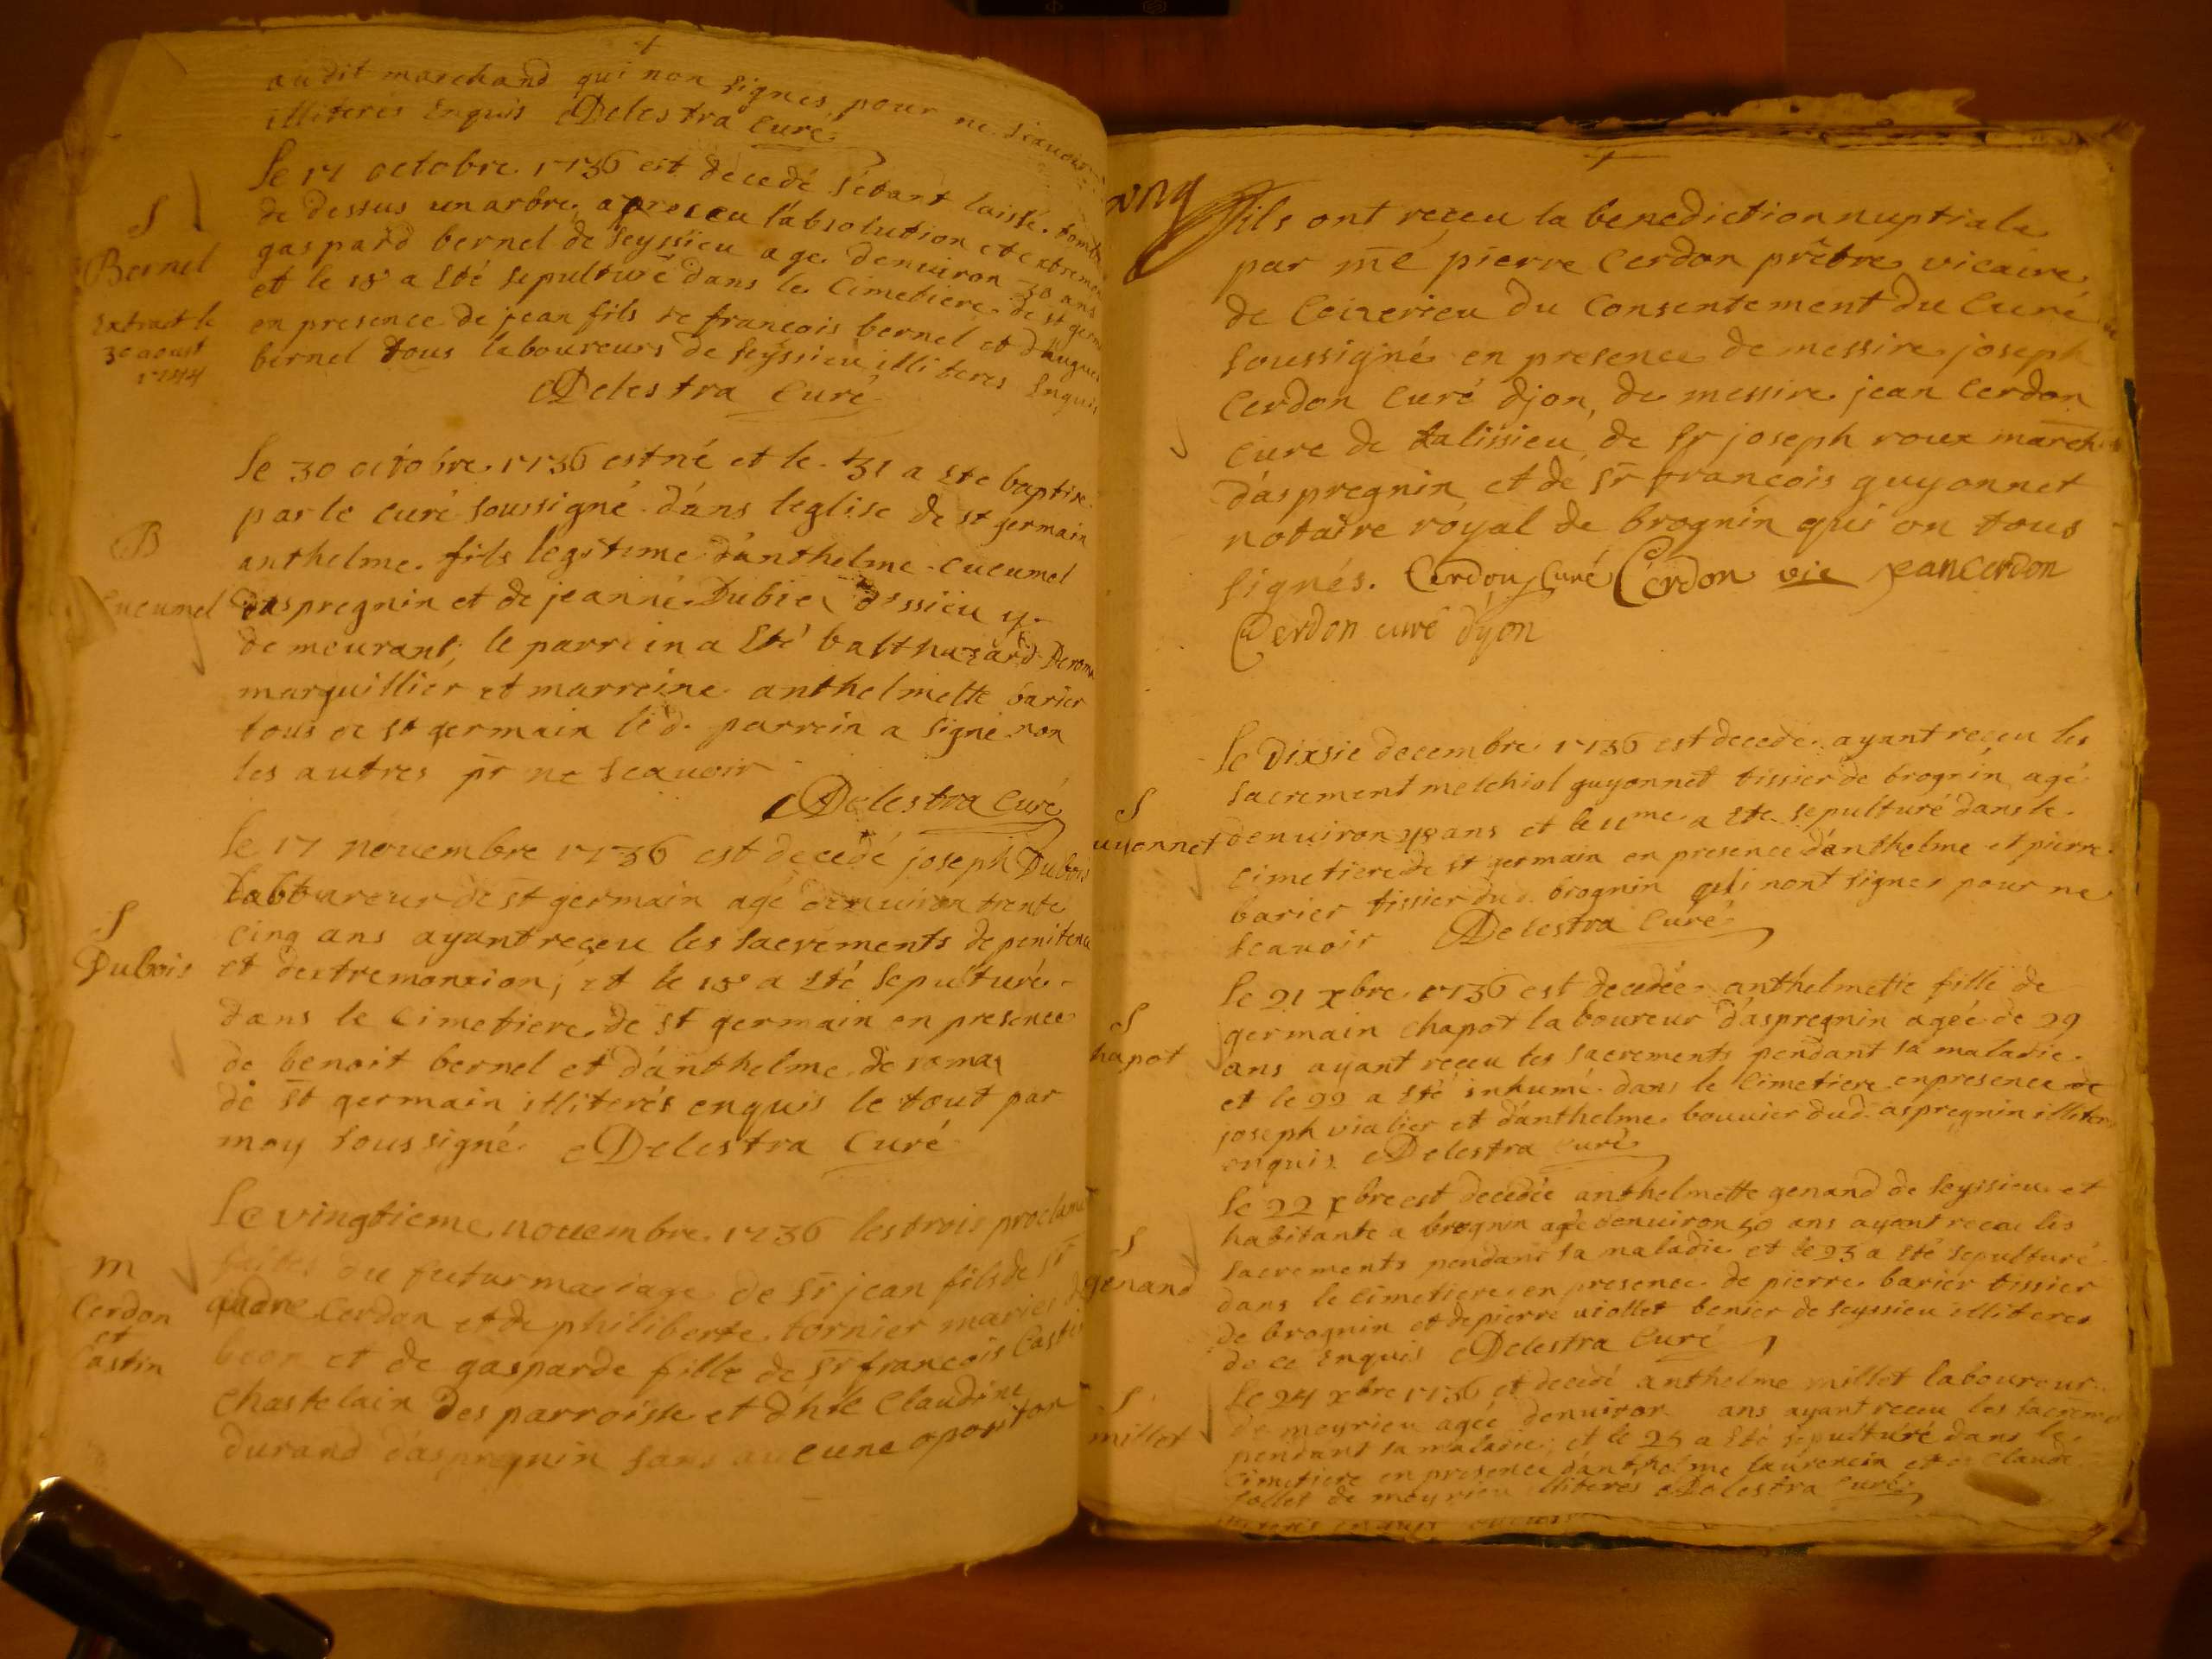 audit marchand qui non signes pour ne scauoir
illiterés Enquis Delestra Curé
Le 17 octobre 1736 est decedé s'étant laissé tomb
de dessus un arbre, a preceu l'absolution et extremon
gaspard bernel de seyssieu age denuiron 30 ans
et le 18 a Eté sepulturé dans le Cimetiere de st germ
en presence de jean fils de francois bernel et d'hugues
bernel tous laboureurs de seyssieu illiteres Enquis
Delestra Curé
S
Bernel
Extrait le
30 aoust
1744
Le 30 octobre 1736 est né et le 31 a Ete baptise
par le curé soussigné dans leglise de st germain
anthelme fils legitime d'anthelme Cucumel
daspregnin et de jeanne Dubie d'essieu y
demeurant, le parrein a Eté balthazard Derom
marguillier et marreine anthelmette barier
tous de st germain led. parrein a signé non
les autres pr ne scauoir
Delestra Curé
B
Cucumel
Le 17 nouembre 1736 est decedé joseph Dubois
laboureur de st germain agé denuiron trente
cinq ans ayant reçeu les sacrements de penitence
et dextremonxion, et le 18 a Eté sepulturé
dans le Cimetiere de st germain en presence
de benoit bernel et d'anthelme de romax
de st germain illiterés enquis le tout par
moy soussigné Delestra Curé
S
Dubois
Le vingtieme nouembre 1736 les trois proclama
faites du futur mariage de sr jean fils de sr
andre Cerdon et de philiberte tornier mariés de
beon et de gasparde fille de sr francois Castin
Chastelain des parroisse et d'hlle Claudine
durand d'aspregnin sans aucune oposition
m
Cerdon
et
Castin
Ils ont reçeu la benediction nuptiale
par me pierre Cerdon prêtre vicaire
de Ceizerieu du Consentement du Curé
soussigné en presence de messire joseph
Cerdon Curé djon, de messire jean Cerdon
Cure de talissieu, de sr joseph roux march
d'aspregnin et de sr francois guyonnet
notaire royal de brognin qui on tous
signés. Cerdon Curé Cerdon vic jean Cerdon
Cerdon curé dyon
Le Dixsie decembre 1736 est decede ayant reçeu les
sacrement melchiol guyonnet tissier de brognin agé
denuiron 48 ans et le 11me a Ete sepulturé dans le
cimetiere de st germain en presence d'anthelme et pierre
barier tissier du d. brognin qui nont signer pour ne
scauoir Delestra Curé
S
uyonnet
Le 21 xbre 1736 est decedée anthelmette fille de
germain chapot laboureur d'aspregnin agée de 29
ans ayant reçeu les sacrements pendant sa maladie
et le 22 a Eté inhumé dans le Cimetiere en presence de
joseph vialier et d'anthelme bouuier dud. aspregnin illiter
enquis Delestra Curé
S
hapot
Le 22 xbre est decedée anthelmette genand de seyssieu et
habitante a brognin agée denuiron 50 ans ayant receu les
sacrements pendant sa maladie et le 23 a Eté sepulturé
dans le cimetiere en presence de pierre barier tissier
de brognin et de pierre viollet benier de seyssieu illiteres
de ce Enquis Delestra Curé
S
genand
Le 24 xbre 1736 et decedé anthelme millet laboureur
de meyrieu agée denuiron ans ayant receu les sacrem
pendant sa maladie, et le 25 a Eté sepulturé dans le
Cimetiere en presence d'anthelme laurencin et de Claude
follet de meyrieu illiteres Delestra Curé
S
millet